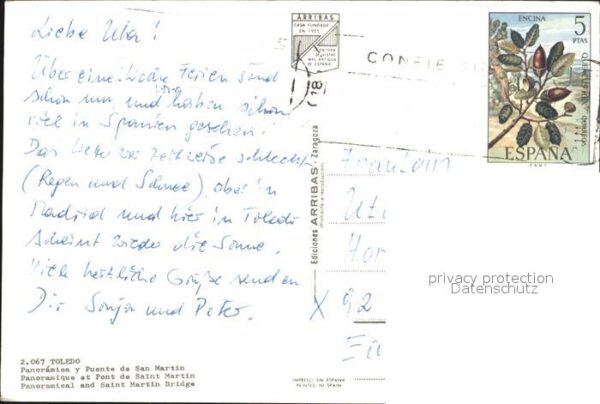 Liebe Uta!
Über eine Woche Ferien sind
schon um, und wir haben schon
viel in Spanien gesehen!
Das Wetter war zeitweise schlecht
(Regen und Schnee), aber in
Madrid und hier in Toledo
scheint wieder die Sonne.
Viele herzliche Grüße senden
Dir Sonja und Peter.
2.067 TOLEDO
Panorámica y Puente de San Martín
Panoramique et Pont de Saint Martin
Panoramical and Saint Martin Bridge
ARRIBAS
CASA FUNDADA
EN 1931
Ediciones ARRIBAS - Zaragoza
IMPRESO EN ESPAÑA
PRINTED IN SPAIN
18
ENCINA
5
PTAS
ESPAÑA
Fräulein
Uta
X 92
privacy protection
Datenschutz